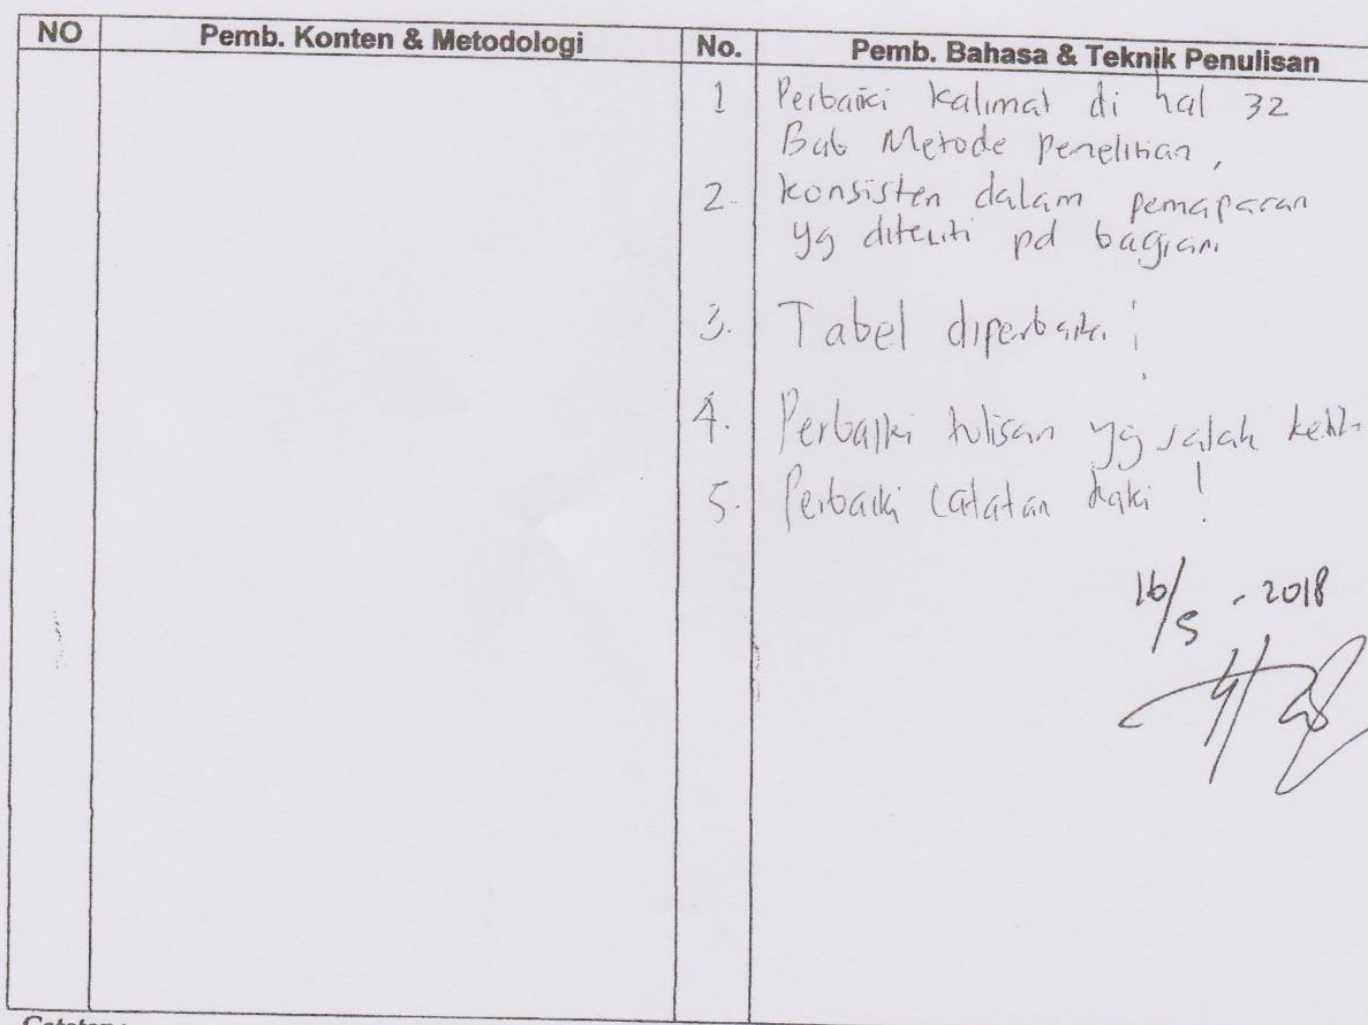 NO Pemb. Konten & Metodologi No. Pemb. Bahasa & Teknik Penulisan
1 Perbaiki kalimat di hal 32
Bab Metode Penelitian,
2. konsisten dalam pemaparan
yg diteliti pd bagian
3. Tabel diperbaiki !
4. Perbaiki tulisan yg salah
5. Perbaiki catatan kaki !
16/5 - 2018